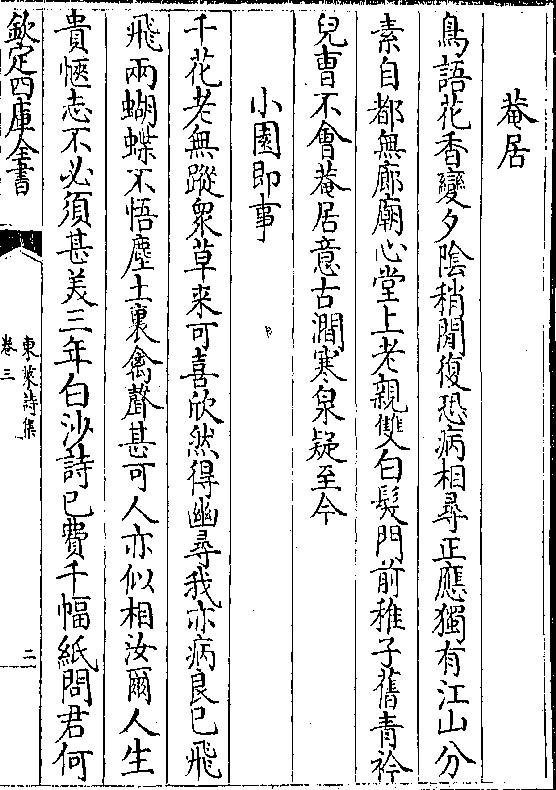 菴居
鳥語花香變夕陰稍閒復恐病相尋正應獨有江山分
素自都無廊廟心堂上老親雙白髮門前稚子舊青衿
兒曹不會菴居意古澗寒泉疑至今
小園即事
千花老無蹤衆草来可喜欣然得幽尋我亦病良已飛
飛兩蝴蝶不悟塵土裏禽聲甚可人亦似相汝爾人生
貴愜志不必須甚美三年白沙詩已費千幅紙問君何
欽定四庫全書
東萊詩集
卷三
二